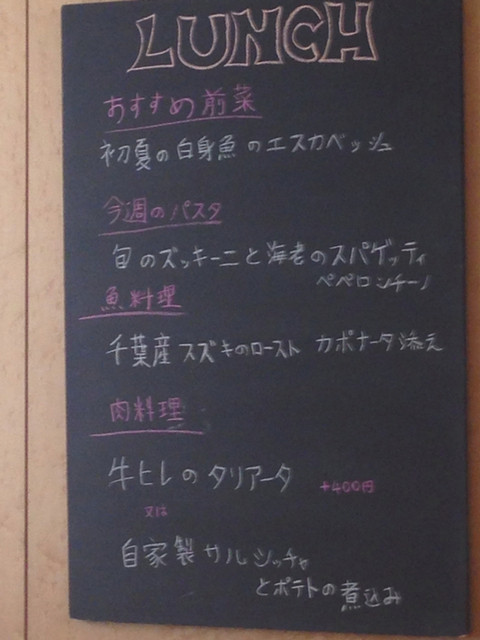 LUNCH
おすすめ前菜
初夏の白身魚のエスカベッシュ
今週のパスタ
旬のズッキーニと海老のスパゲッティ
ペペロンチーノ
魚料理
千葉産スズキのロースト カポナータ添え
肉料理
牛ヒレのタリアータ +400円
又は
自家製サルシッチャ
とポテトの煮込み